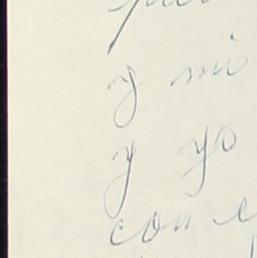 y mi
y yo
con